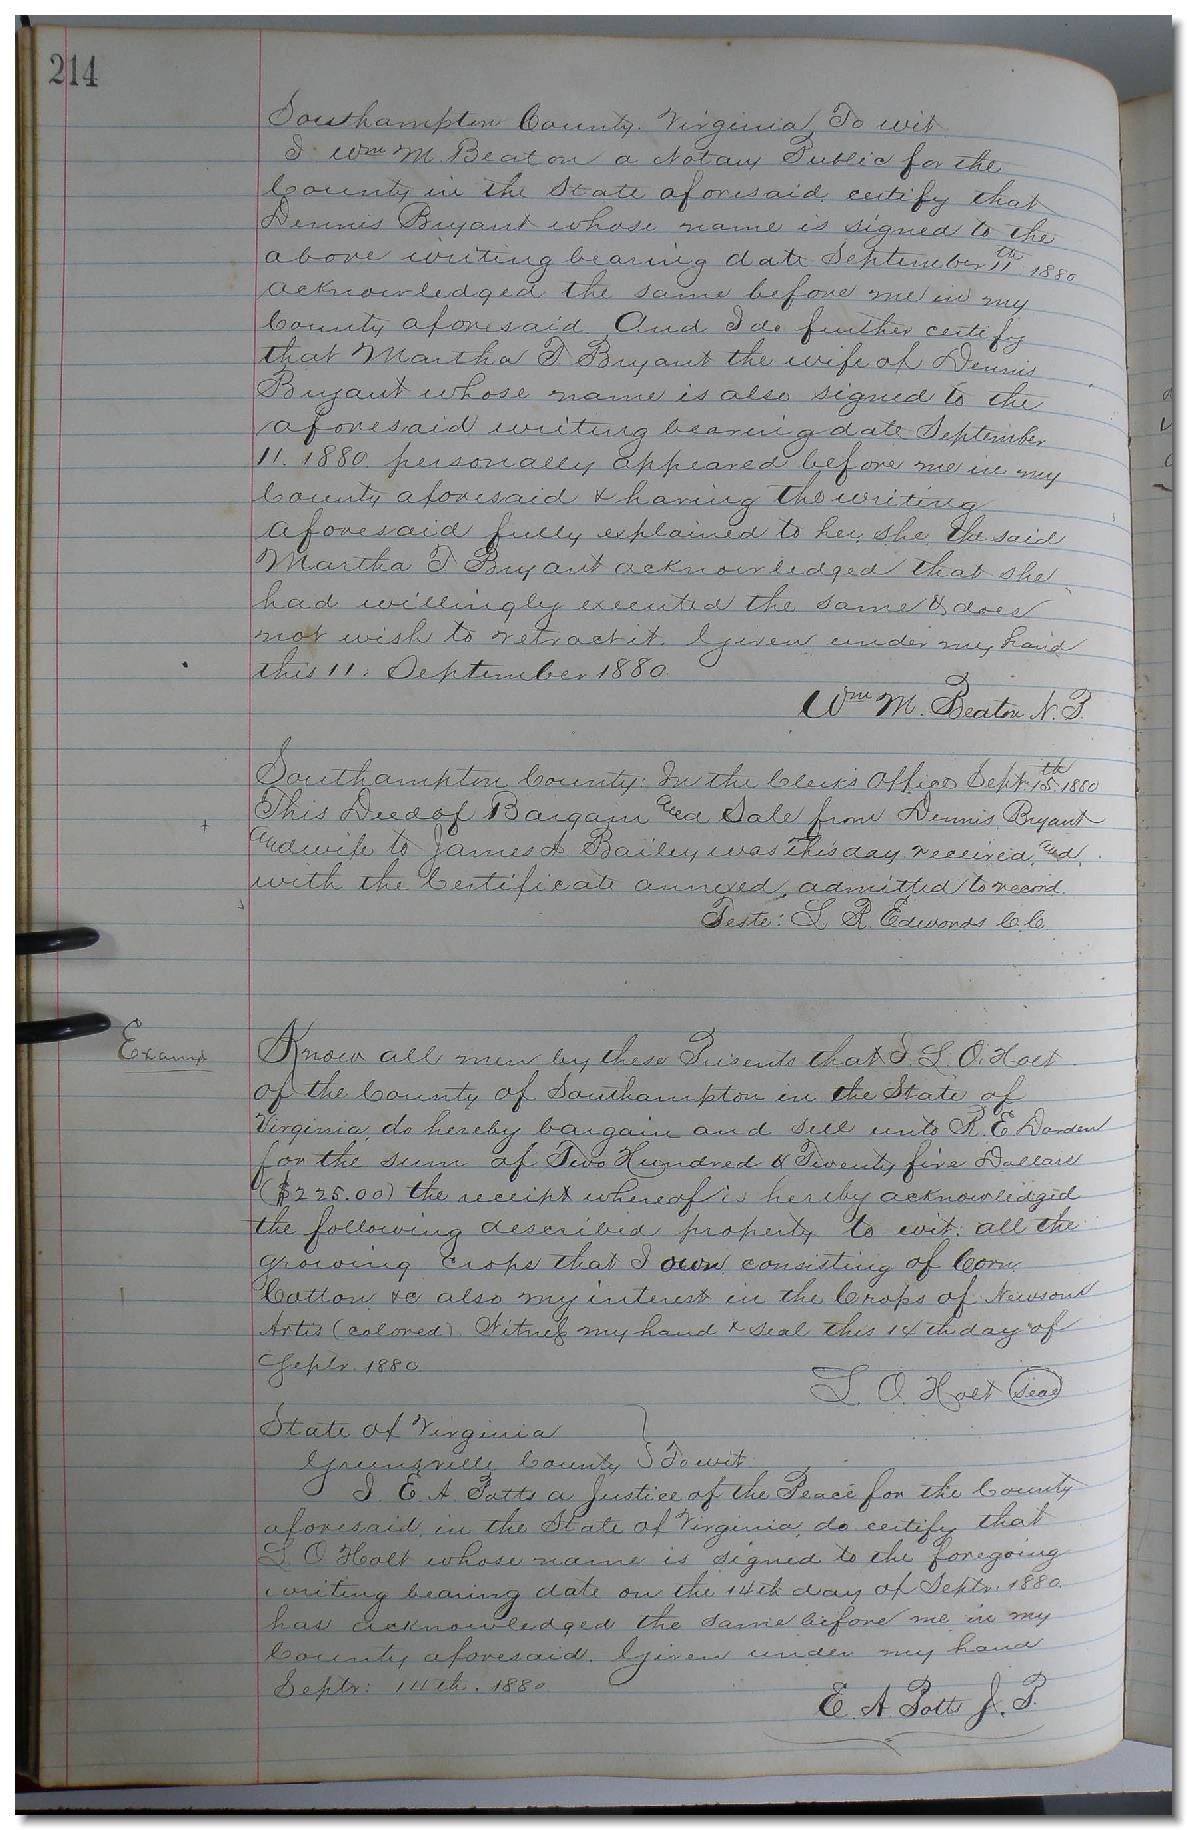 214
Southampton County. Virginia, To wit
I Wm M. Beaton a Notary Public for the
County in the State aforesaid, certify that
Dennis Bryant whose name is signed to the
above writing bearing date September 11th 1880
acknowledged the same before me in my
County aforesaid. And I do further certify
that Martha T Bryant the wife of Dennis
Bryant whose name is also signed to the
aforesaid writing bearing date September
11. 1880. personally appeared before me in my
County aforesaid & having the writing
aforesaid fully explained to her, she the said
Martha T Bryant acknowledged that she
had willingly executed the same & does
not wish to retract it. Given under my hand
this 11. September 1880
Wm M. Beaton N. P.
Southampton County: In the Clerk's Office Sept: 15th 1880
This Deed of Bargain and Sale from Dennis Bryant
and wife to James Bailey was this day received, and,
with the Certificate annexed, admitted to record.
Teste: L R. Edwards C.C.
Examd
Know all men by these Presents that I. L. O. Holt
of the County of Southampton in the State of
Virginia, do hereby bargain and sell unto R. E Darden
for the sum of Two Hundred & Twenty five Dollars
($225.00) the receipt whereof is hereby acknowledged
the following described property to wit: all the
growing crops that I own consisting of Corn,
Cotton &c also my interest in the Crops of Newsom
Artis (colored). Witness my hand & seal this 14th day of
Septr. 1880
L. O. Holt Seal
State of Virginia
Greensville County } To wit
I. E. A. Potts a Justice of the Peace for the County
aforesaid, in the State of Virginia, do certify that
L O Holt whose name is signed to the foregoing
writing bearing date on the 14th day of Septr. 1880.
has acknowledged the same before me in my
County aforesaid. Given under my hand
Septr: 14th. 1880
E. A. Potts J. P.